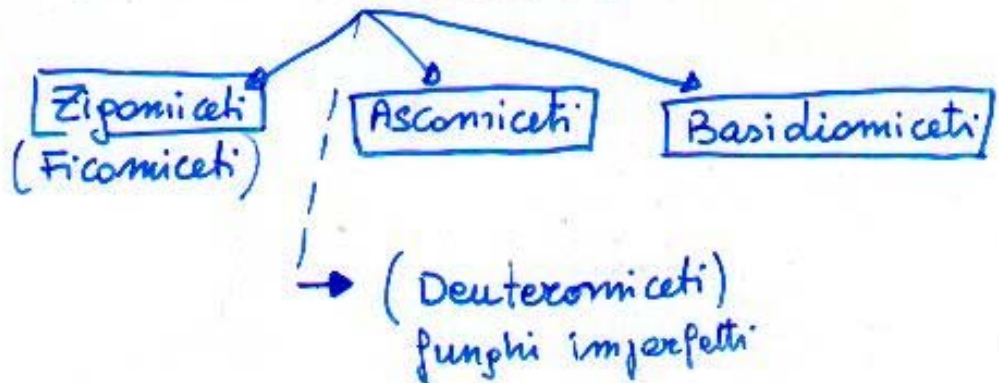 Zigomiceti Ascomiceti Basidiomiceti
(Ficomiceti)
(Deuteromiceti)
funghi imperfetti